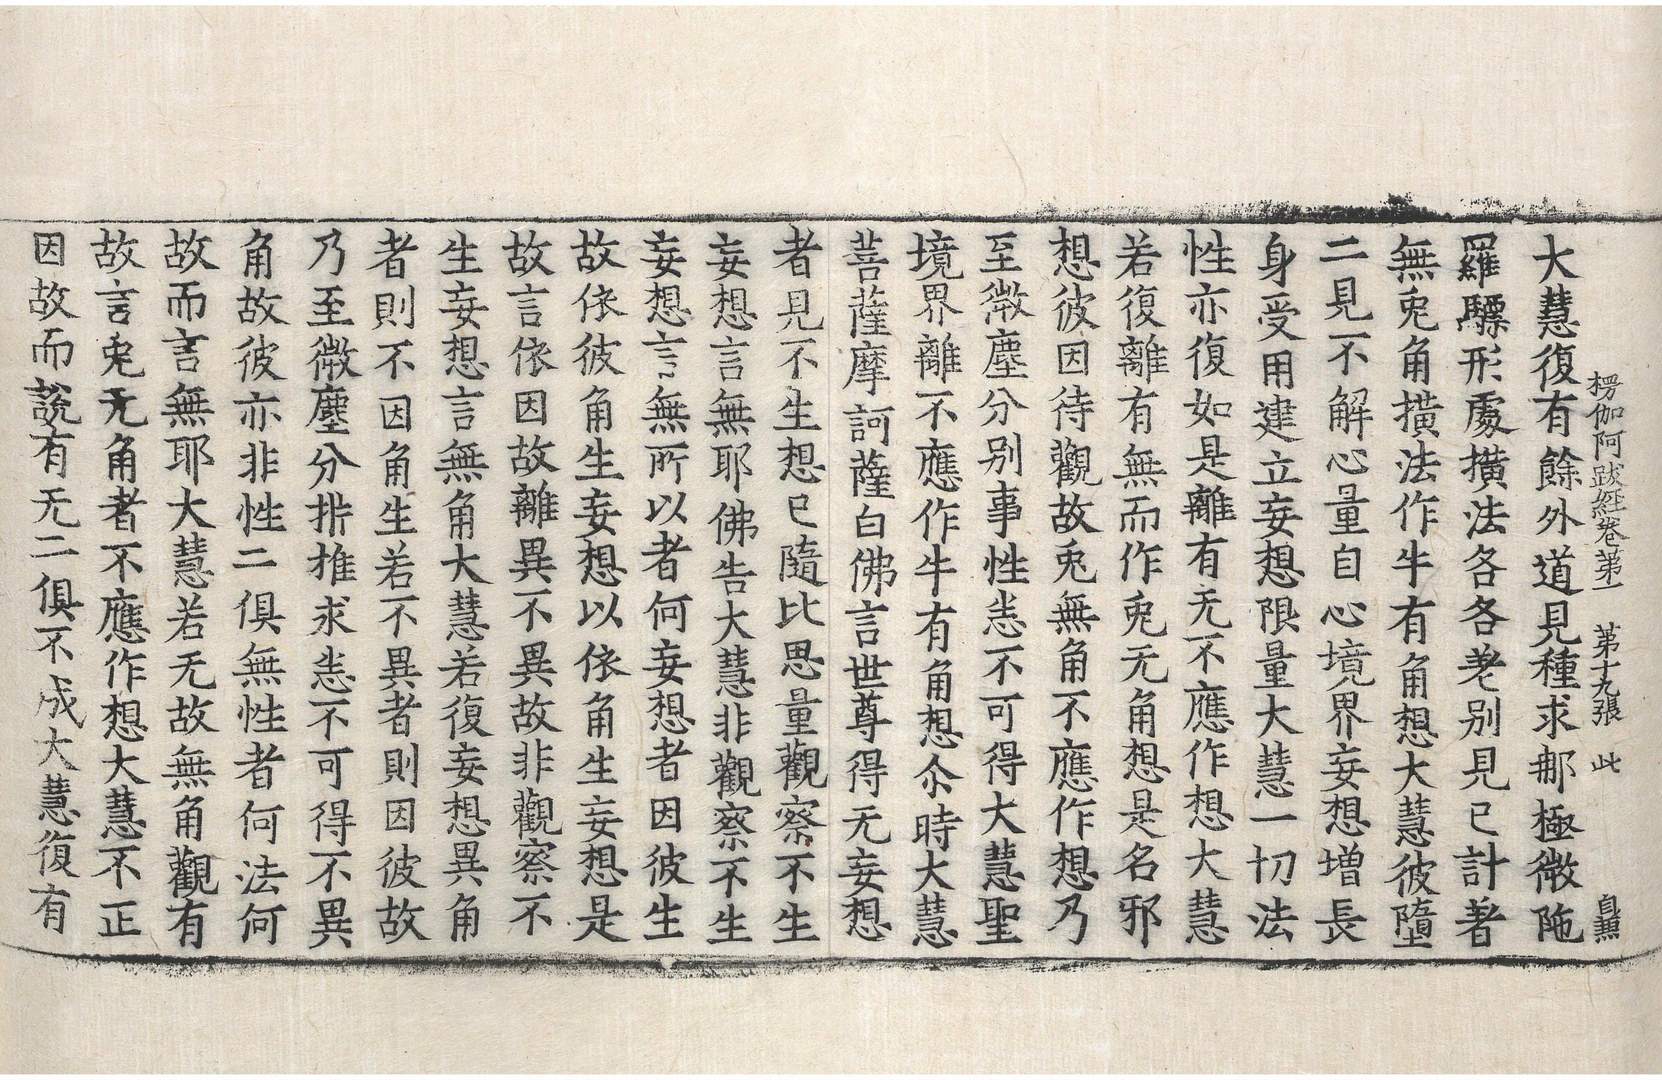 楞伽阿跋経卷第一 第十九張 此 自黑
大慧復有餘外道見種求那極微陁
羅驃形處撗法各各差別見已計著
無兎角撗法作牛有角想大慧彼墮
二見不解心量自心境界妄想增長
身受用建立妄想限量大慧一切法
性亦復如是離有无不應作想大慧
若復離有無而作兎无角想是名邪
想彼因待觀故兎無角不應作想乃
至微塵分别事性悉不可得大慧聖
境界離不應作牛有角想尒時大慧
菩薩摩訶薩白佛言世尊得无妄想
者見不生想已隨比思量觀察不生
妄想言無耶佛告大慧非觀察不生
妄想言無所以者何妄想者因彼生
故依彼角生妄想以依角生妄想是
故言依因故離異不異故非觀察不
生妄想言無角大慧若復妄想異角
者則不因角生若不異者則因彼故
乃至微塵分㭊推求悉不可得不異
角故彼亦非性二俱無性者何法何
故而言無耶大慧若无故無角觀有
故言兎无角者不應作想大慧不正
因故而說有无二俱不成大慧復有